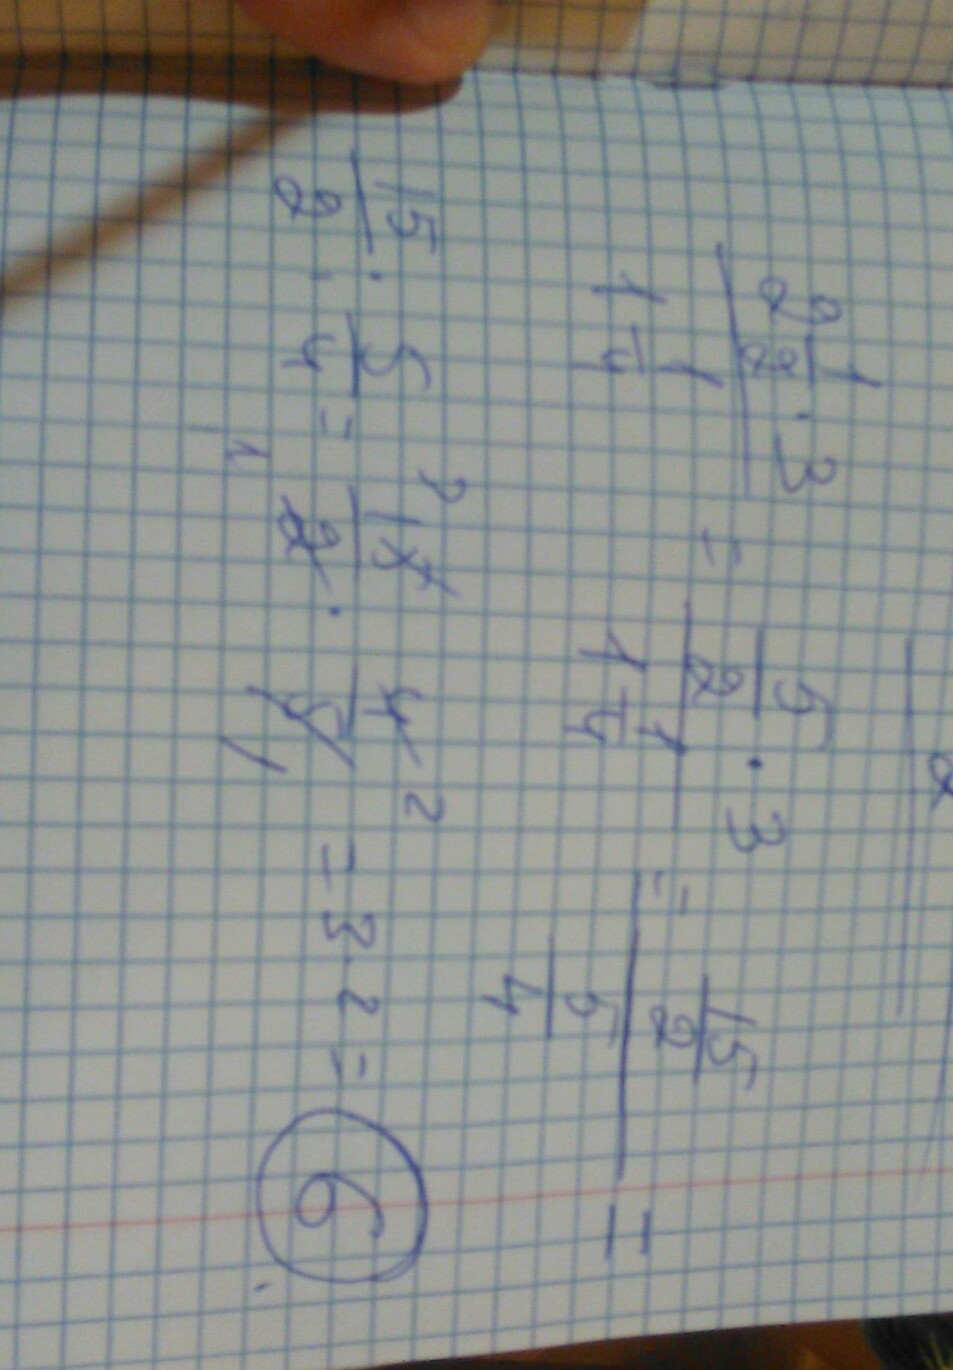 2 1/2 · 3 / 1 1/4 = 5/2 · 3 / 1 1/4 = 15/2 / 5/4 =
15/2 : 5/4 = 15/2 · 4/5 = 3 · 2 = 6